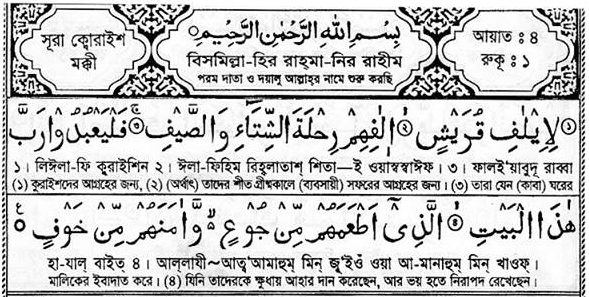 সূরা ক্বোরাইশ
মক্কী
بِسْمِ اللهِ الرَّحْمٰنِ الرَّحِيْمِ
বিসমিল্লা-হির রাহ়মা-নির রাহীম
পরম দাতা ও দয়ালু আল্লাহর নামে শুরু করছি
আয়াত : ৪
রুকূ : ১
لِاِيْلٰفِ قُرَيْشٍ ۙ اٖلٰفِهِمْ رِحْلَةَ الشِّتَآءِ وَالصَّيْفِ ۚ فَلْيَعْبُدُوْا رَبَّ
১। লিঈলা-ফি ক্বুরাইশিন ২। ঈলা-ফিহিম রিহ্লাতাশ্ শিতা—ই ওয়াস্বস্বাঈফ। ৩। ফালই'য়াবুদূ রাব্বা
(১) কুরাইশদের আগ্রহের জন্য, (২) (অর্থাৎ) তাদের শীত গ্রীষ্মকালে (ব্যবসায়ী) সফরের আগ্রহের জন্য। (৩) তারা যেন (কাবা) ঘরের
هٰذَا الْبَيْتِ ۙ الَّذِىْۤ اَطْعَمَهُمْ مِّنْ جُوْعٍ ۙ وَّاٰمَنَهُمْ مِّنْ خَوْفٍ ع
হা-যাল বাইত্ ৪। আল্লাযী~আত্ব'আমাহুম্ মিন্ জূ'ইওঁ ওয়া আ-মানাহুম্ মিন্ খাওফ্।
মালিকের ইবাদাত করে। (৪) যিনি তাদেরকে ক্ষুধায় আহার দান করেছেন, আর ভয় হতে নিরাপদ রেখেছেন।